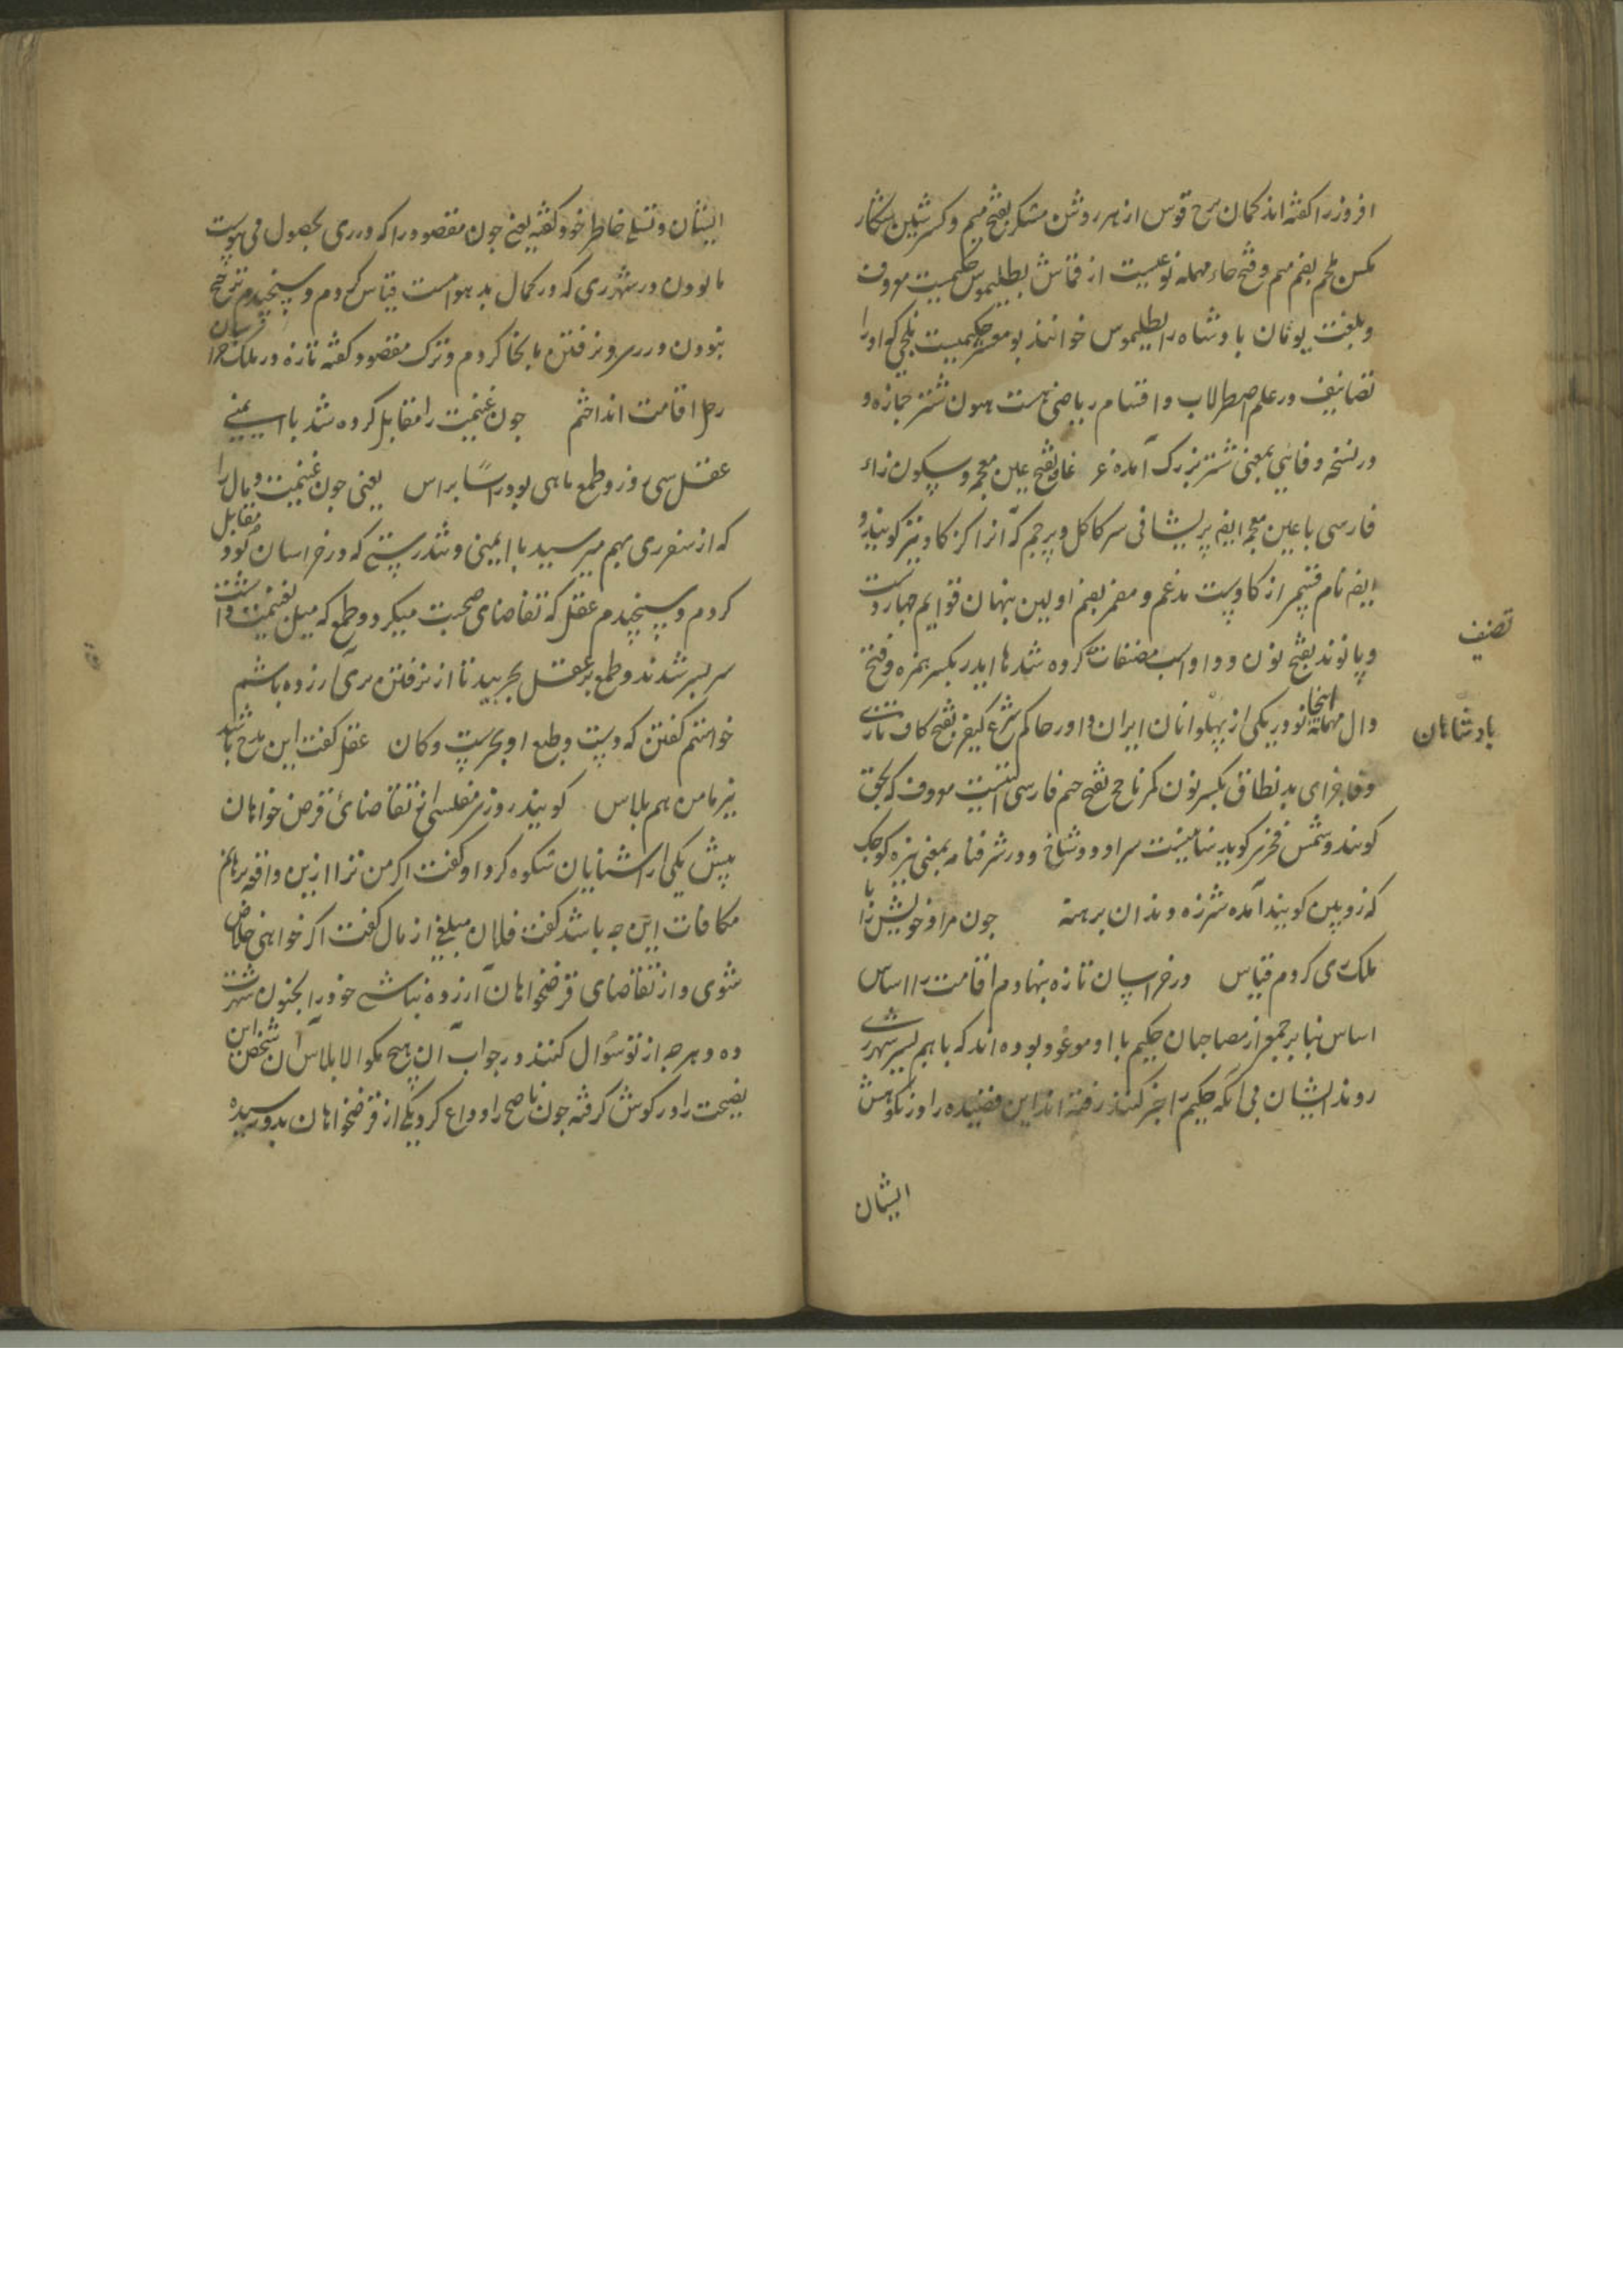 افروز را کفته اند کمان سرخ قوس از هر روشن مشکر بفتح میم و کسر شین شکار
مکن ملحم بضم میم و فتح حاء مهمله نوعیست از قماش بطلیموس حکیمیست معروف
و بلغت یونان بادشاه را بطلیموس خوانند بو معشر حکیمیست بلخی که او را
تصانیف در علم اصطرلاب و اقسام ریاضی هست هیون شتر جمازه و
در نسخه وفایی بمعنی شتر بزرک آمده غژغاو بفتح عین معجمه و سکون زاء
فارسی با عین معجمه ایضا پریشانی سر کاکل و پرچم که آنرا کژکاو نیز کویند و
ایضا نام قسم از کاوست مدغم و مضمر بضم اولین پنهان قوایم چهار دست
و پا نوند بفتح نون و واو اسب مصنفات کرده شدها ایدر بکسر همزه و فتح
دال مهمله اینجا نوذر یکی از پهلوانان ایران داور حاکم شرع کیفر بفتح کاف تازی
و فا جزای بد نطاق بکسر نون کمر ناچخ بفتح جیم فارسی معروف که بحق
کویند و شمس فخری کوید سر او دو شاخ و در شرفنامه بمعنی نیزه کوچک
که زوبین کویند آمده شرزه دندان برهنه چون مراد خویش را با
ملک ری کردم قیاس در خراسان تازه بنهادم اقامت را اساس
اساس بنا بر جمع از مصاحبان حکیم با او موعود بوده اند که باهم بسیر شهر ری
روند ایشان بی آنکه حکیم را خبر کنند رفته اند این قصیده را در نکوهش
ایشان
تصنیف
بادشاهان
ایشان و تسلی خاطر خود کفته یعنی چون مقصود را که در ری بحصول می پیوست
با بودن در شهر ری که در کمال بد هواست قیاس کردم و سنجیدم ترجیح
نبودن در ری و نرفتن بآنجا کردم و ترک مقصود کفته تازه در ملک خراسان
رحل اقامت انداختم چون غنیمت را مقابل کرده شد با ایمنی
عقل سی روز و طمع ماهی بود راسا براس یعنی چون غنیمت و مال را
که از سفر ری بهم میرسید با ایمنی و تندرستی که در خراسان بود مقابل
کردم و سنجیدم عقل که تقاضای صحبت میکرد و طمع که میل بغنیمت داشت
سر بسر شدند و طمع بر عقل بچربید تا از نرفتن بری آزرده باشم
خواستم کفتن که دست و طبع او بحرست و کان عقل کفت این مدح باشد
نیز با من هم پلاس کویند روزی مفلسی از تقاضای قرض خواهان
پیش یکی از آشنایان شکوه کرد او کفت اکر من ترا ازین واقعه برهانم
مکافات این چه باشد کفت فلان مبلغی از مال کفت اکر خواهی خلاص
شوی و از تقاضای قرضخواهان آزرده نباشی خود را بجنون شهرت
ده و هرچه از تو سوال کنند در جواب آن هیچ مکو الا پلاس آن شخص این
نصیحت را در کوش کرفته چون ناصح را وداع کرد یکی از قرضخواهان بدو رسیده